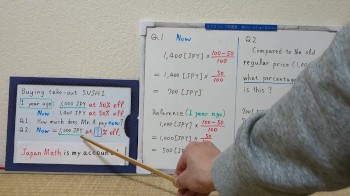 Buying take-out SUSHI
1 year ago 1,000 JPY at 50% off.
Now 1,400 JPY at 50% off.
Q1. How much does Mr. A pay now?
Q2. Now = 1,000 JPY at ? % off.
Japan Math is my account!
Q.1 Now
1,400 [JPY] × 100-50/100
= 1,400 [JPY] × 50/100
= 700 [JPY]
Reference (1 year ago)
1,000 [JPY] × 100-50/100
= 1,000 [JPY] × 50
= 500 [JP
Q2
Compared to the old
regular price (1,000
what percentage
is this ?